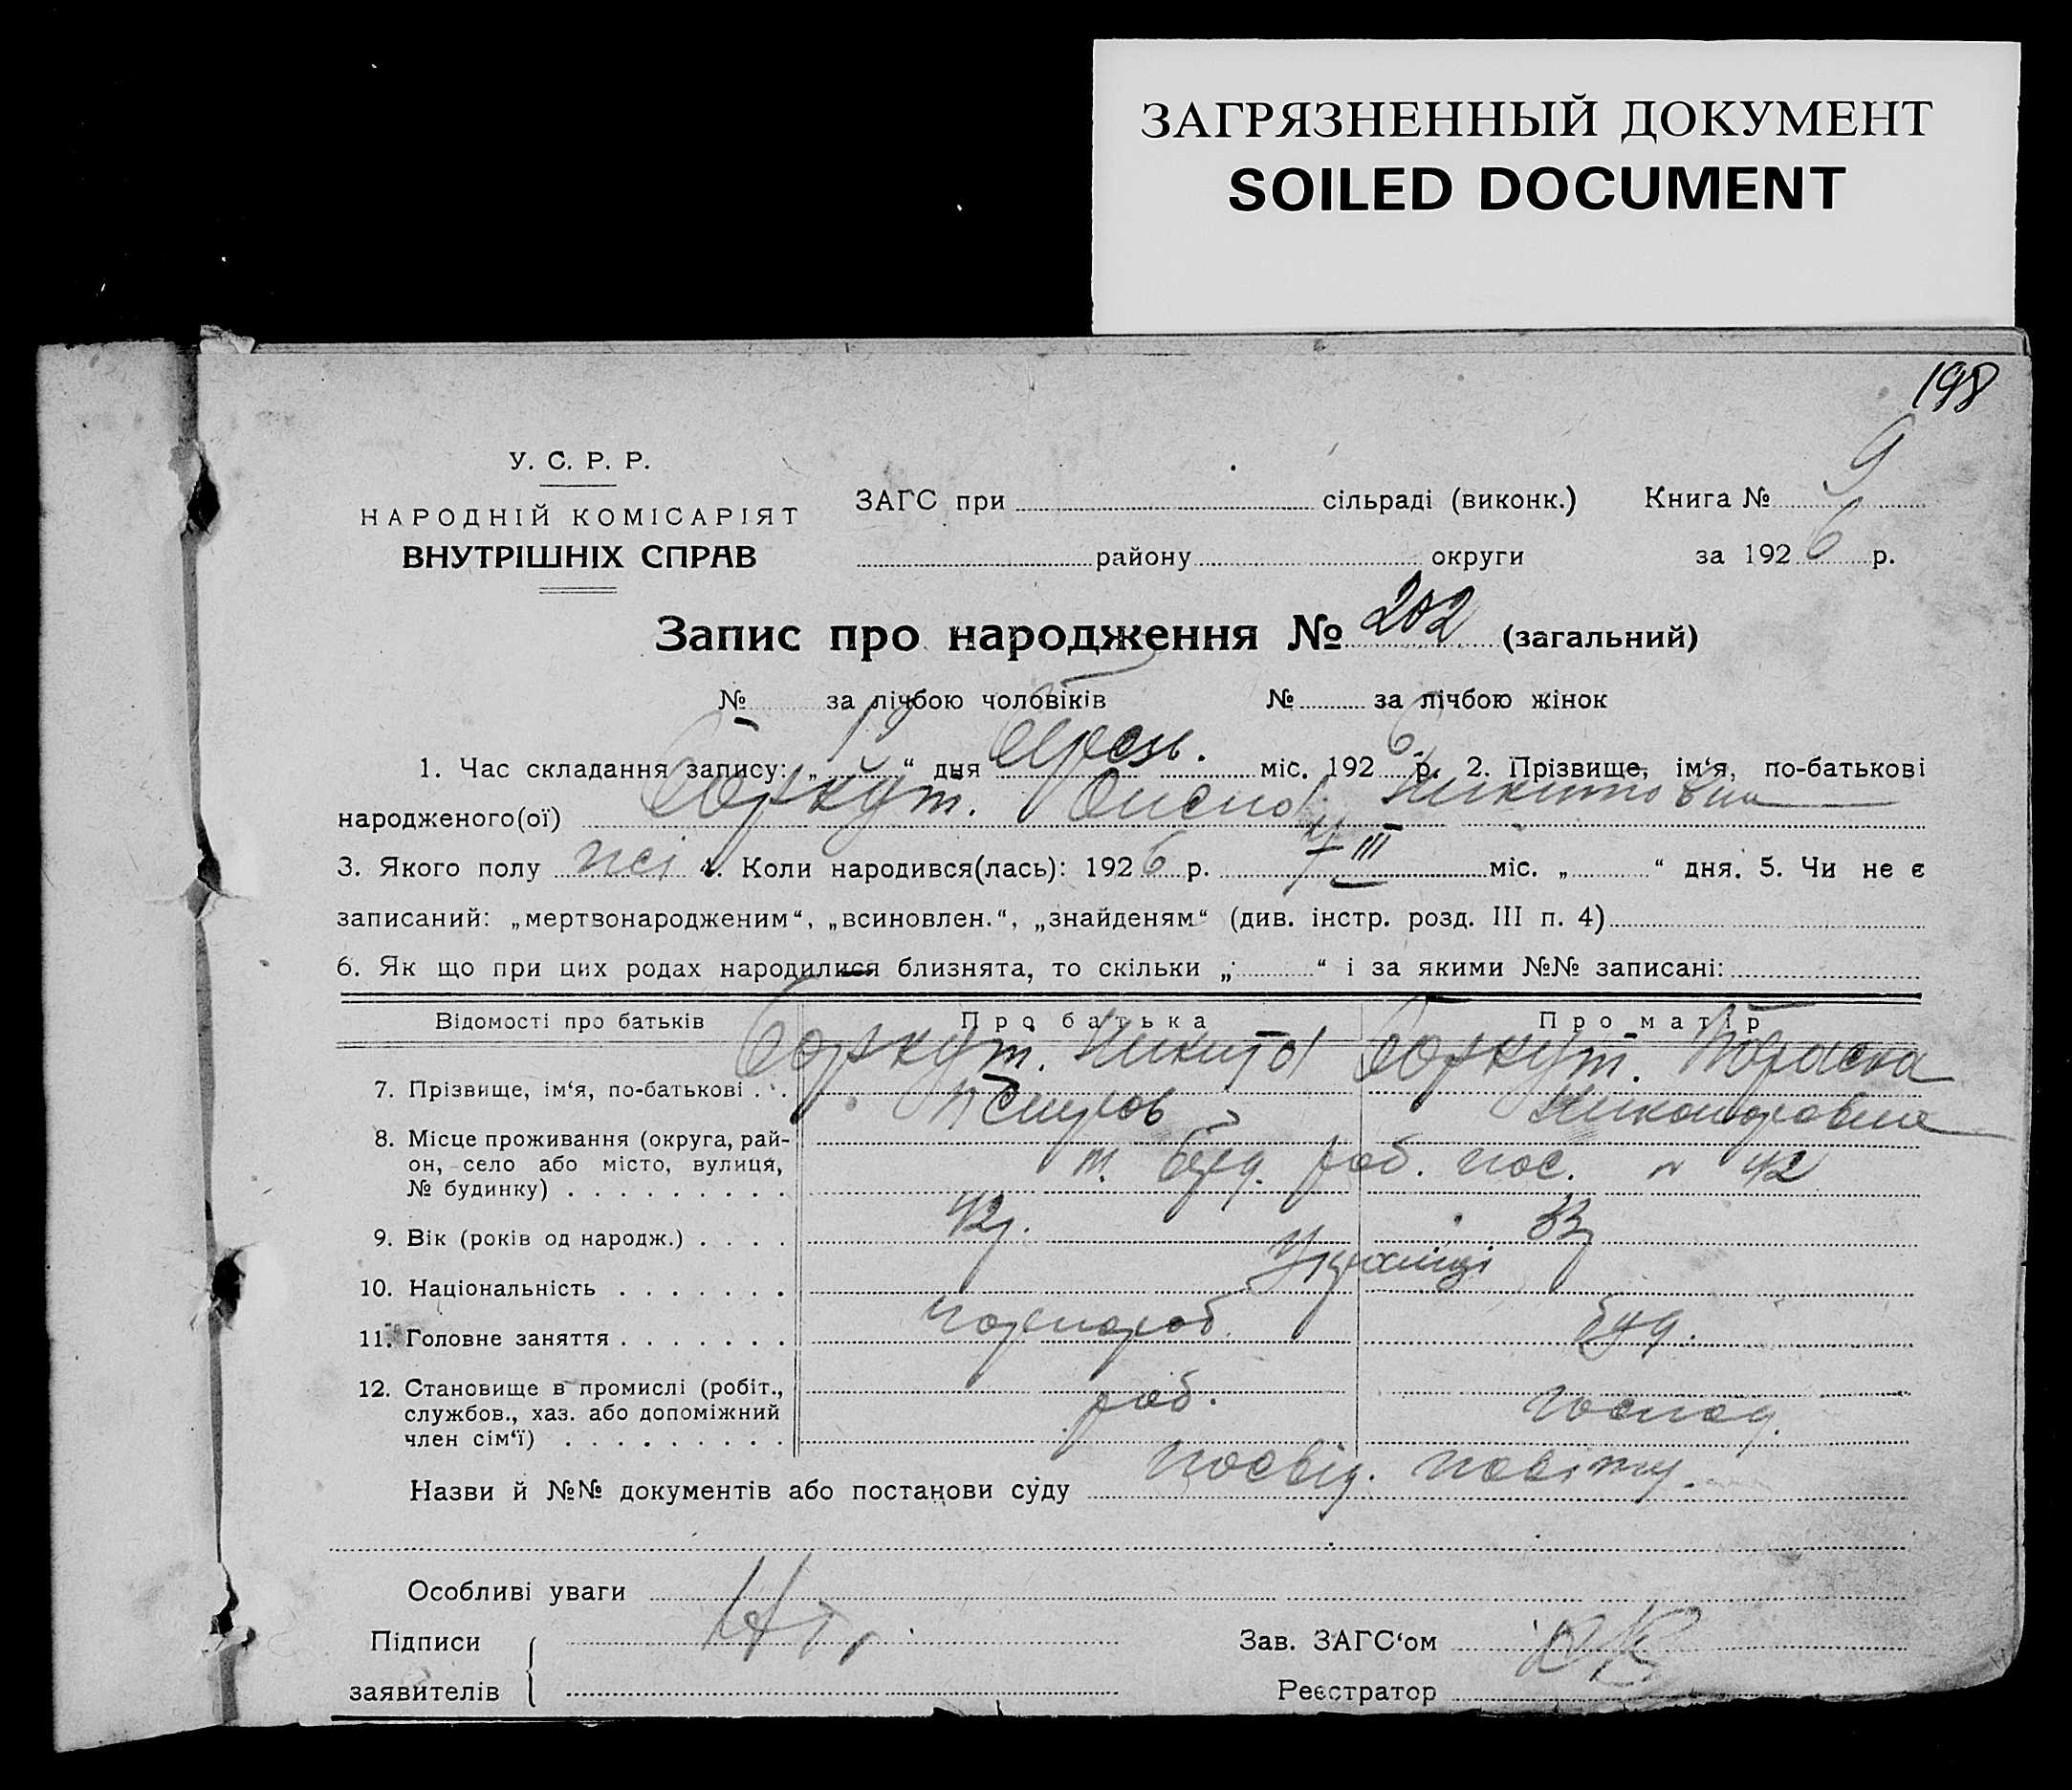 ЗАГРЯЗНЕННЫЙ ДОКУМЕНТ
SOILED DOCUMENT
198
У. С. Р. Р.
НАРОДНІЙ КОМІСАРІЯТ
ВНУТРІШНІХ СПРАВ
ЗАГС при сільраді (виконк.) Книга № 9
району округи за 1926 р.
Запис про народження № 202 (загальний)
№ за лічбою чоловіків № за лічбою жінок
1. Час складання запису: „19“ дня міс. 1926 р. 2. Прізвище, ім‘я, по-батькові
народженого(ої) Никитовна
3. Якого полу 4. Коли народився(лась): 1926 р. III міс. „ “ дня. 5. Чи не є
записаний: „мертвонародженим“, „всиновлен.“, „знайденям“ (див. інстр. розд. III п. 4)
6. Як що при цих родах народилися близнята, то скільки „ “ і за якими №№ записані:
Відомості про батьків Про батька Про матір
7. Прізвище, ім‘я, по-батькові . . Никита
8. Місце проживання (округа, рай-
он, село або місто, вулиця,
№ будинку) . . . . . . . . . буд. роб. пос. № 42
9. Вік (років од народж.) . . . . 42р. 33
10. Національність . . . . . . . Українці
11. Головне заняття . . . . . . . чорнороб.
12. Становище в промислі (робіт.,
службов., хаз. або допоміжний
член сім‘ї) . . . . . . . . . роб. господ.
Назви й №№ документів або постанови суду посвід.
Особливі уваги
Підписи Зав. ЗАГС‘ом
заявителів Реєстратор